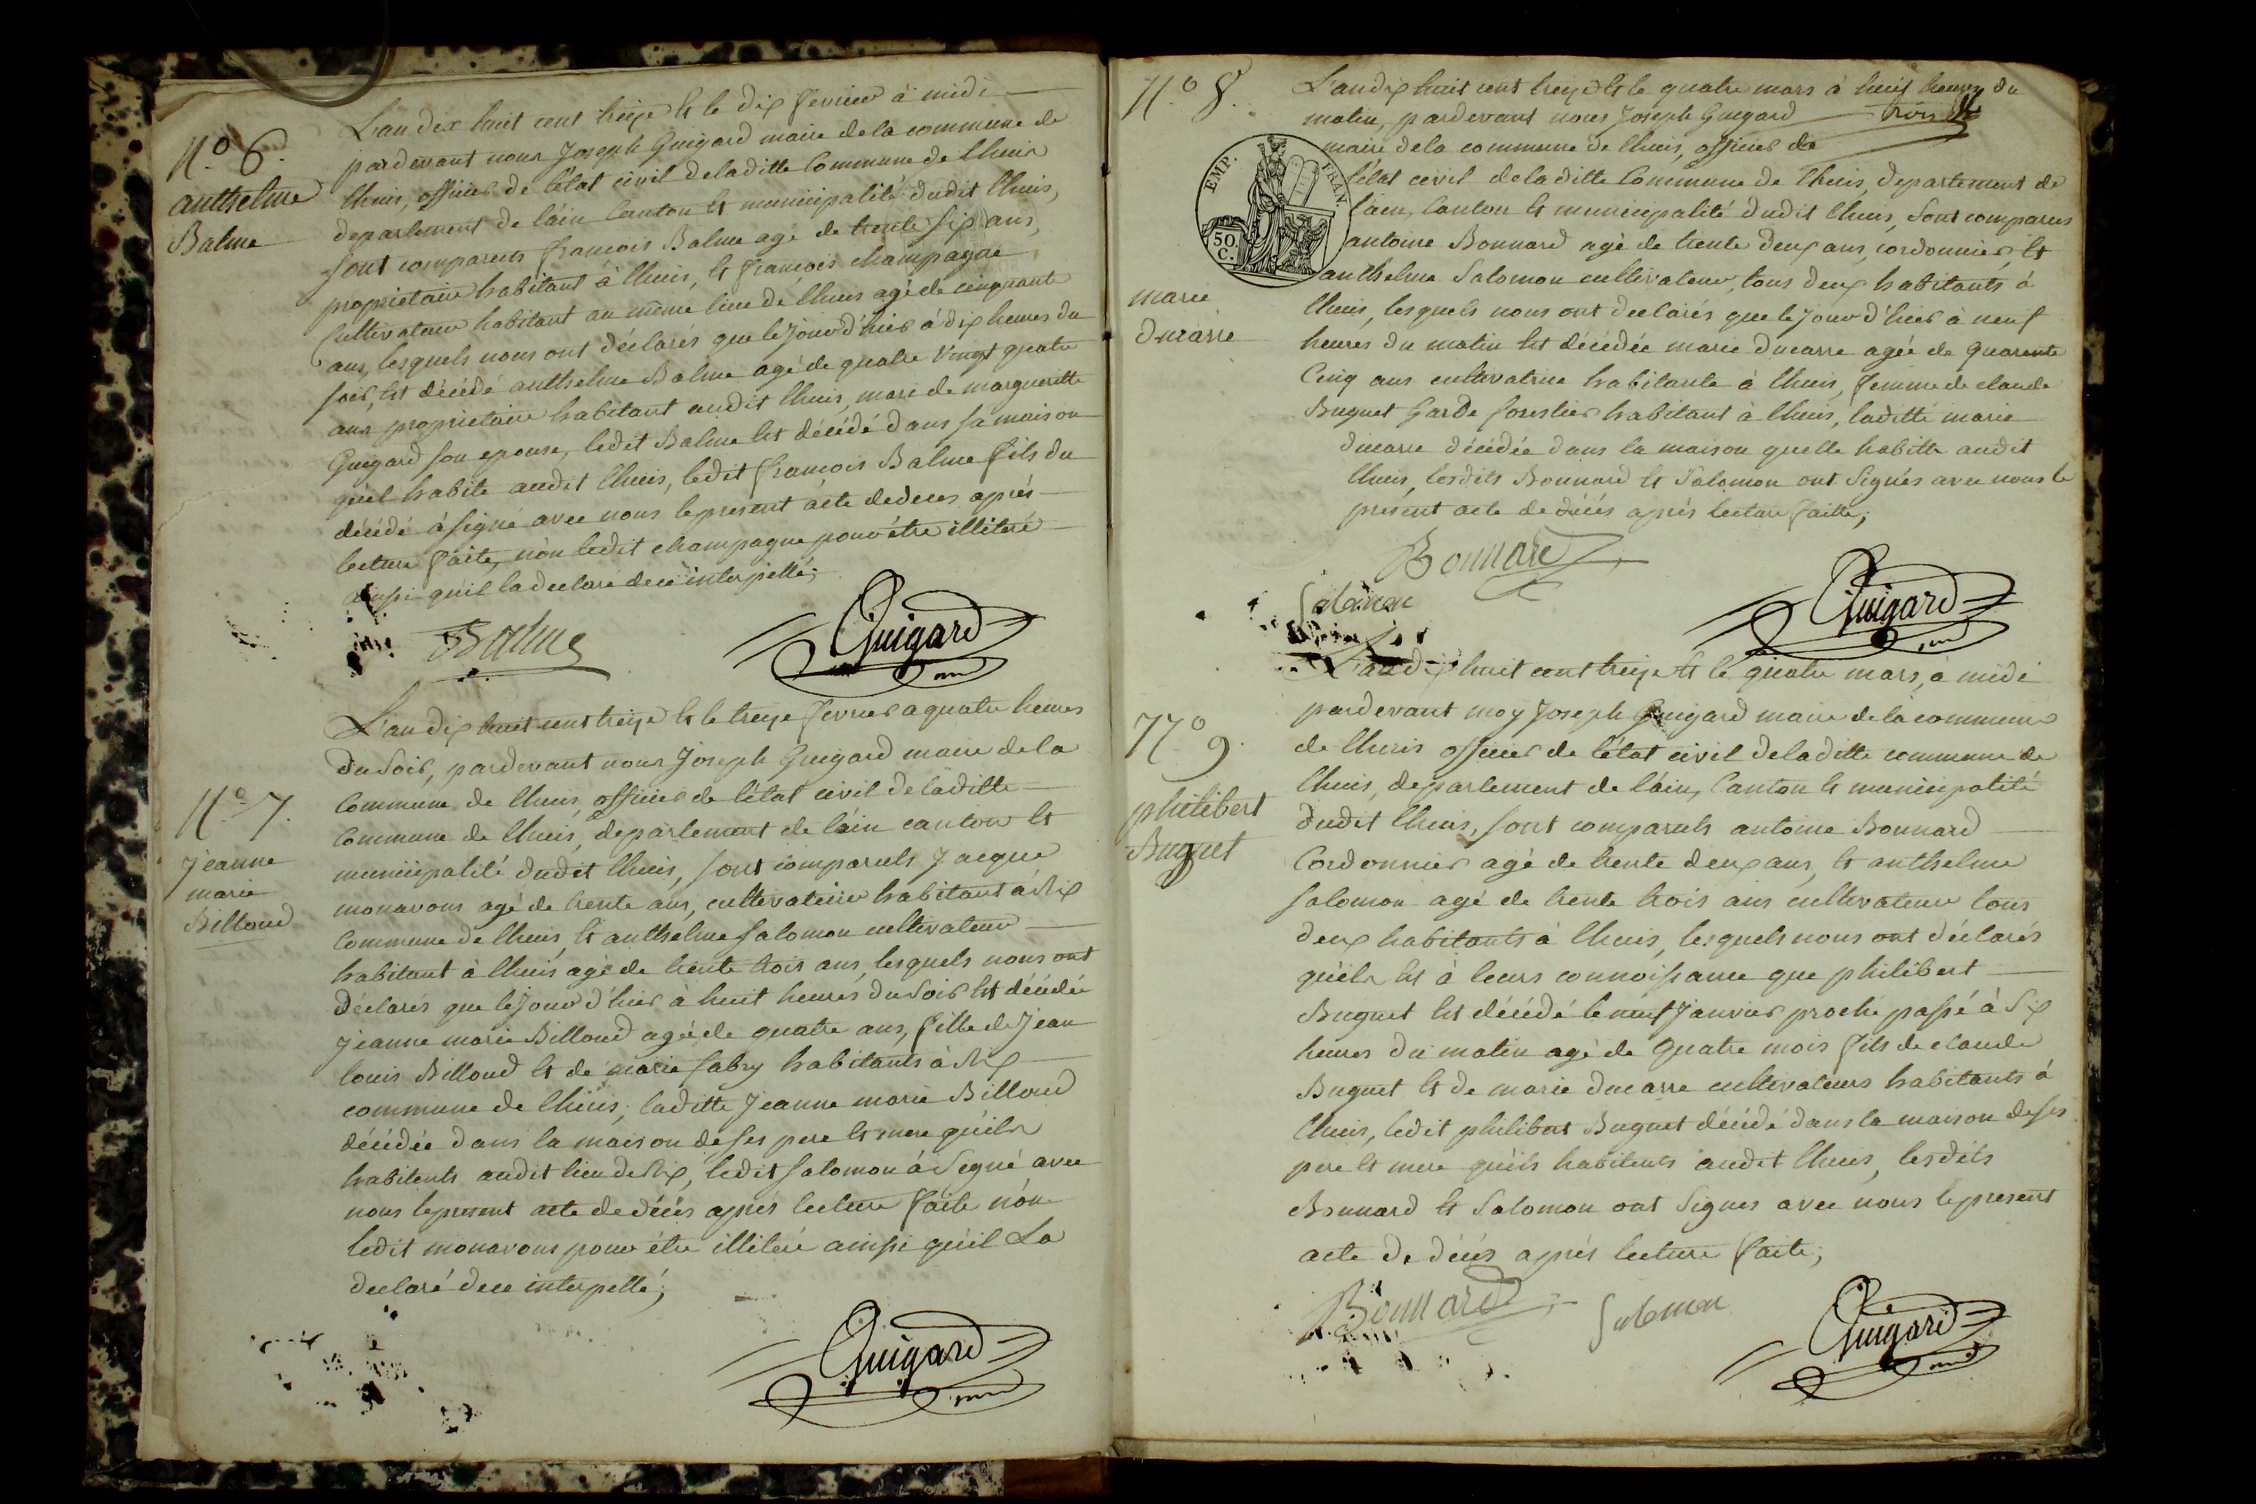 N.o 6.
anthelme
Balme
L'an dix huit cent treize et le dix fevrier à midi
pardevant nous Joseph Guigard maire de la commune de
lhuis, officier de l'état civil de laditte Commune de lhuis
departement de l'ain Canton et municipalité dudit lhuis,
sont comparus françois Balme agé de trente six ans,
proprietaire habitant à lhuis, et françois champagne
Cultivateur habitant au même lieu de lhuis agé de cinquante
ans, lesquels nous ont déclarés que le jour d'hier à dix heures du
soir, est décédé anthelme Balme agé de quatre vingt quatre
ans proprietaire habitant audit lhuis, mari de margueritte
Guigard son epouse, ledit Balme est décédé dans sa maison
qu'il habite audit lhuis, ledit françois Balme fils du
décédé à signé avec nous le present acte de deces aprés
lecture faite, nòn ledit champagne pour être illiteré
ainsi qu'il la declaré de ce interpellé;
Balme
Guigard
N.o 7.
jeanne
marie
Billoud
L'an dix huit cent treize et le treize fevrier a quatre heures
du soir, pardevant nous Joseph Guigard maire de la
Commune de lhuis, officier de l'état civil de laditte
Commune de lhuis, departement de l'ain canton et
municipalité dudit lhuis, sont comparuts Jacque
monavous agé de trente ans, cultivateur habitant à Rix
Commune de lhuis, et anthelme Salomon cultivateur
habitant à lhuis agé de trente trois ans, lesquels nous ont
déclarés que le jour d'hier à huit heures du soir est décédée
jeanne marie Billoud agé de quatre ans, fille de Jean
louis Billoud et de marie fabry habitants à Rix
commune de lhuis, laditte Jeanne marie Billoud
décédée dans la maison de ses pere et mere qu'ils
habitents audit lieu de Rix, ledit Salomon à Signé avec
nous le present acte de décés aprés lecture faite nòn
ledit monavous pour étre illiteré ainsi qu'il La
declaré de ce interpellé;
Guigard
N.o 8.
EMP. FRAN.
50. C.
marie
ducarre
L'an dix huit cent treize et le quatre mars à huit heures du
matin, pardevant nous Joseph Guigard
maire de la commune de lhuis, officier de
l'état civil de laditte Commune de lhuis, departement de
l'ain, Canton et municipalité dudit lhuis, sont comparus
antoine Bonnard agé de trente deux ans, cordonnier, et
anthelme Salomon cultivateur, tous deux habitants à
lhuis, lesquels nous ont declarés que le jour d'hier à neuf
heures du matin est décédée marie ducarre agée de quarente
Cinq ans cultivatrice habitante à lhuis, femme de claude
Buguet Garde forestier habitant à lhuis, laditte marie
ducarre décédée dans la maison quelle habitte audit
lhuis, lesdits Bonnard et Salomon ont Signés avec nous le
present acte de décés aprés lecture faitte;
Bonnard
Salomon
Guigard
N.o 9.
philibert
Buguet
L'an dix huit cent treize et le quatre mars, à midi
pardevant moy Joseph Guigard maire de la commune
de lhuis officier de l'état civil de laditte commune de
lhuis, departement de l'ain, Canton et municipalité
dudit lhuis, sont comparuts antoine Bonnard
Cordonnier agé de trente deux ans, et anthelme
Salomon agé de trente trois ans cultivateur tous
deux habitants à lhuis, lesquels nous ont déclarés
qu'ils est à leurs connoissance que philibert
Buguet est décédé le neuf Janvier proche passé à Six
heures du matin agé de quatre mois fils de claude
Buguet et de marie ducarre cultivateurs habitants à
lhuis, ledit philibert Buguet décédé dans la maison de ses
pere et mere qu'ils habitents audit lhuis, lesdits
Bonnard et Salomon ont Signés avec nous le present
acte de décés aprés lecture faite;
Bonnard
Salomon
Guigard